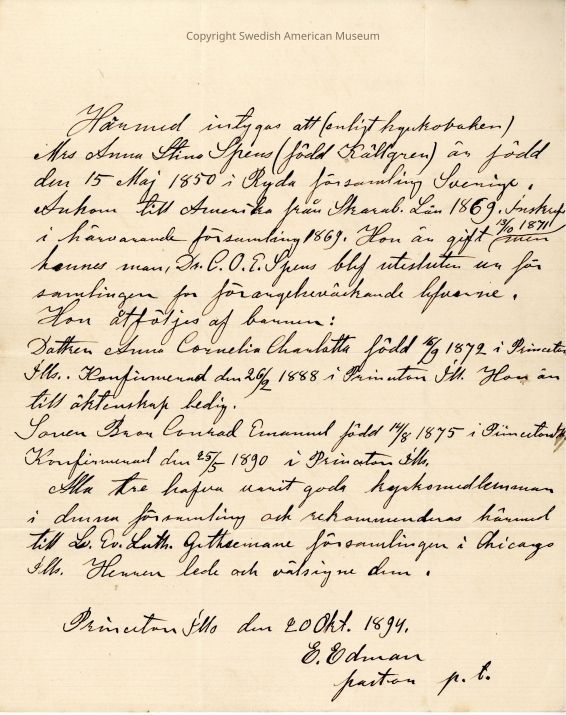 Copyright Swedish American Museum
Härmed intygas att (enligt kyrkoboken)
Mrs Anna Stina Spens (född Källgren) är född
den 15 Maj 1850 i Ryda församling Sverige.
Ankom till Amerika från Skarab. Län 1869. Inskref
i härvarande församling 1869. Hon är gift 13/10 1871 men
hennes man, Dr. C. O. E. Spens blef utesluten ur för
samlingen för förargelseväckande lefverne.
Hon åtföljes af barnen:
Dottren Anna Cornelia Charlotta född 16/9 1872 i Princeton
Ills. Konfirmerad den 26/2 1888 i Princeton Ill. Hon är
till äktenskap ledig.
Sonen Bror Conrad Emanuel född 14/8 1875 i Princeton
Konfirmerad den 25/5 1890 i Princeton Ills.
Alla tre hafva varit goda kyrkomedlemmar
i denna församling och rekommenderas härmed
till Ev. Luth. Gethsemane församlingen i Chicago
Ills. Herren lede och välsigne dem.
Princeton Ills den 20 Okt. 1894.
E. Edman
pastor p. t.